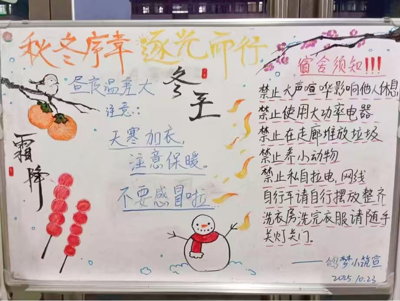 秋冬序章 逐光而行
昼夜温差大
注意:
天寒加衣,
注意保暖
不要感冒啦
冬至
霜降
宿舍须知!!!
禁止大声喧哗影响他人休息
禁止使用大功率电器
禁止在走廊堆放垃圾
禁止养小动物
禁止私自拉电、网线
自行车请自行摆放整齐
洗衣房洗完衣服请随手
关灯关门.
梦小筑宣
2025.10.23